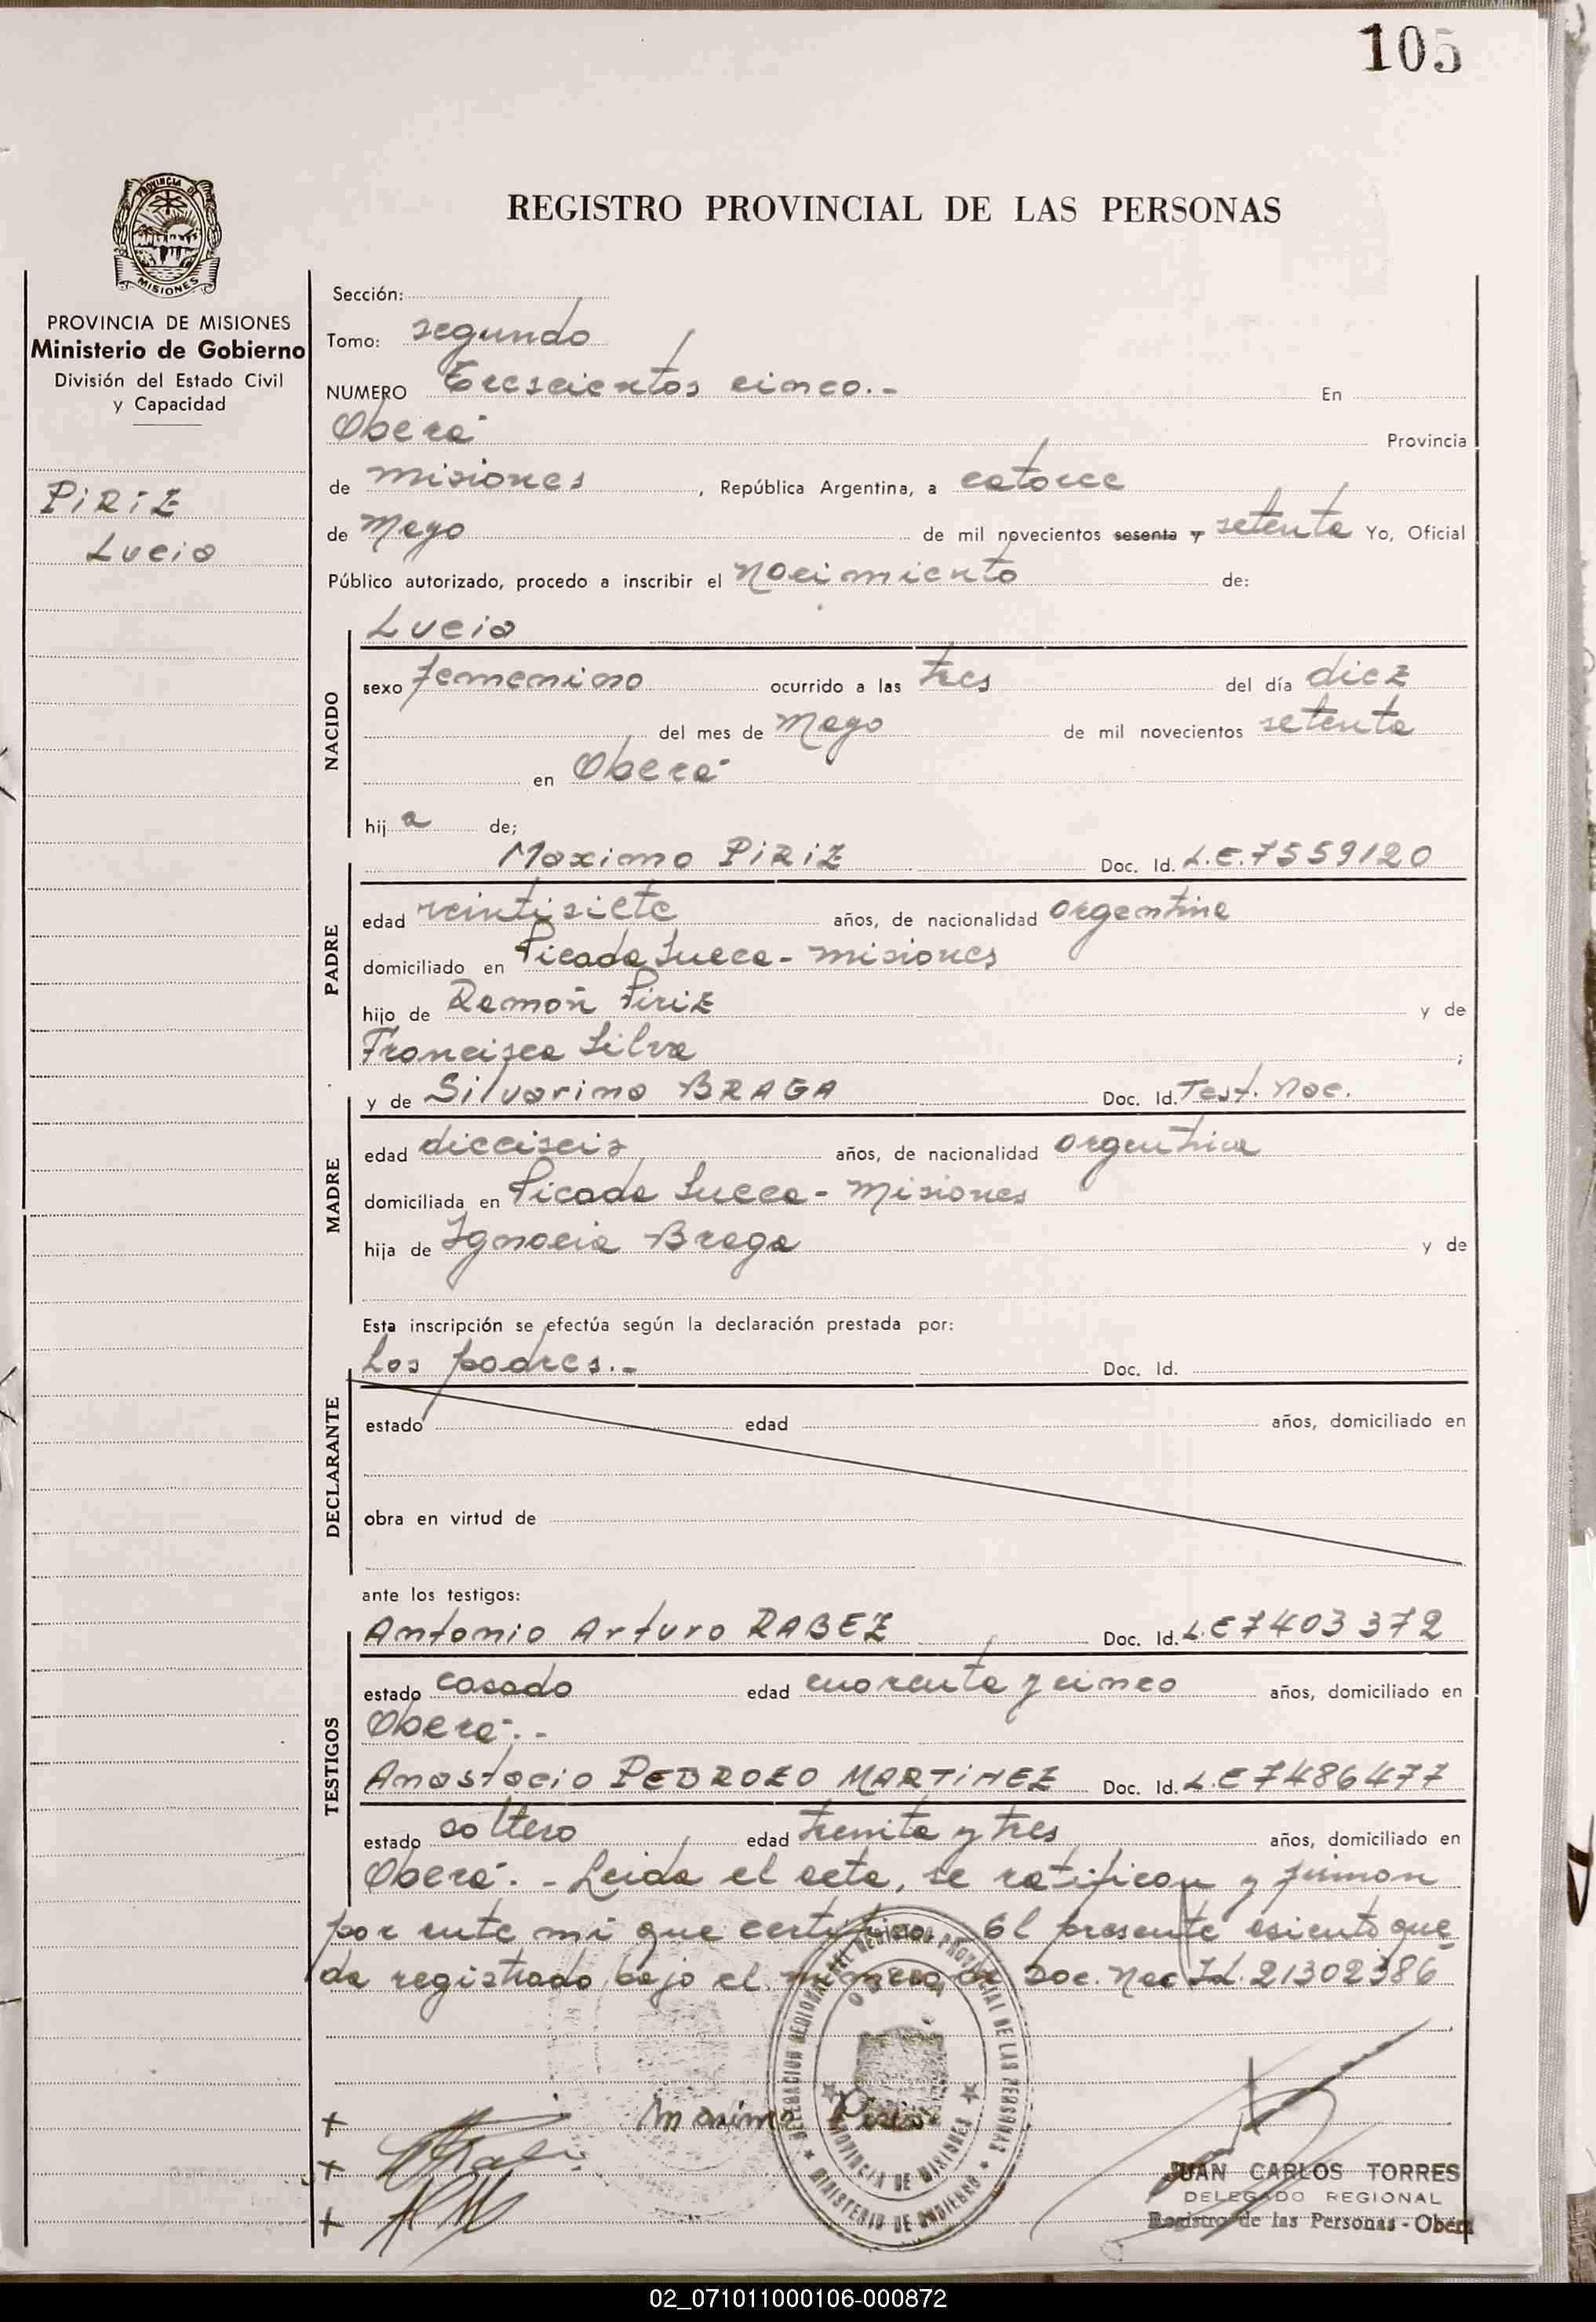 105
PROVINCIA DE MISIONES
REGISTRO PROVINCIAL DE LAS PERSONAS
PROVINCIA DE MISIONES
Ministerio de Gobierno
División del Estado Civil
y Capacidad
PiRiZ
Lucia
Sección:
Tomo: segundo
NUMERO Trescientos cinco.- En
Oberá Provincia
de misiones, República Argentina, a catorce
de Mayo de mil novecientos sesenta y setenta Yo, Oficial
Público autorizado, procedo a inscribir el nacimiento de:
Lucia
NACIDO
sexo femenino ocurrido a las tres del día diez
del mes de Mayo de mil novecientos setenta
en Oberá
hija de;
Maximo PiRiZ Doc. Id. L.E.7559120
PADRE
edad veintisiete años, de nacionalidad argentina
domiciliado en Picada Sueca - misiones
hijo de Ramón Piriz y de
Francisca Silva ;
y de Silvarina BRAGA Doc. Id. Test. Nac.
MADRE
edad dieciseis años, de nacionalidad argentina
domiciliada en Picada Sueca - Misiones
hija de Ignacia Braga y de
Esta inscripción se efectúa según la declaración prestada por:
Los padres.- Doc. Id.
DECLARANTE
estado edad años, domiciliado en
obra en virtud de
ante los testigos:
Antonio Arturo RABEZ Doc. Id. L.E 7403372
TESTIGOS
estado casado edad cuarenta y cinco años, domiciliado en
Oberá.-
Anastacio PEDROZO MARTiNEZ Doc. Id. L.E 7486477
estado soltero edad treinta y tres años, domiciliado en
Oberá.- Leida el acta, se ratifican y firman
por ante mi que certifico. El presente asiento que
da registrado bajo el número de Doc. Nac Id. 21302386
DELEGACION REGIONAL DEL REGISTRO PROVINCIAL DE LAS PERSONAS
OBERA
PROVINCIA DE MISIONES
MINISTERIO DE GOBIERNO
Maximo Piris
JUAN CARLOS TORRES
DELEGADO REGIONAL
Registro de las Personas - Oberá
02_071011000106-000872